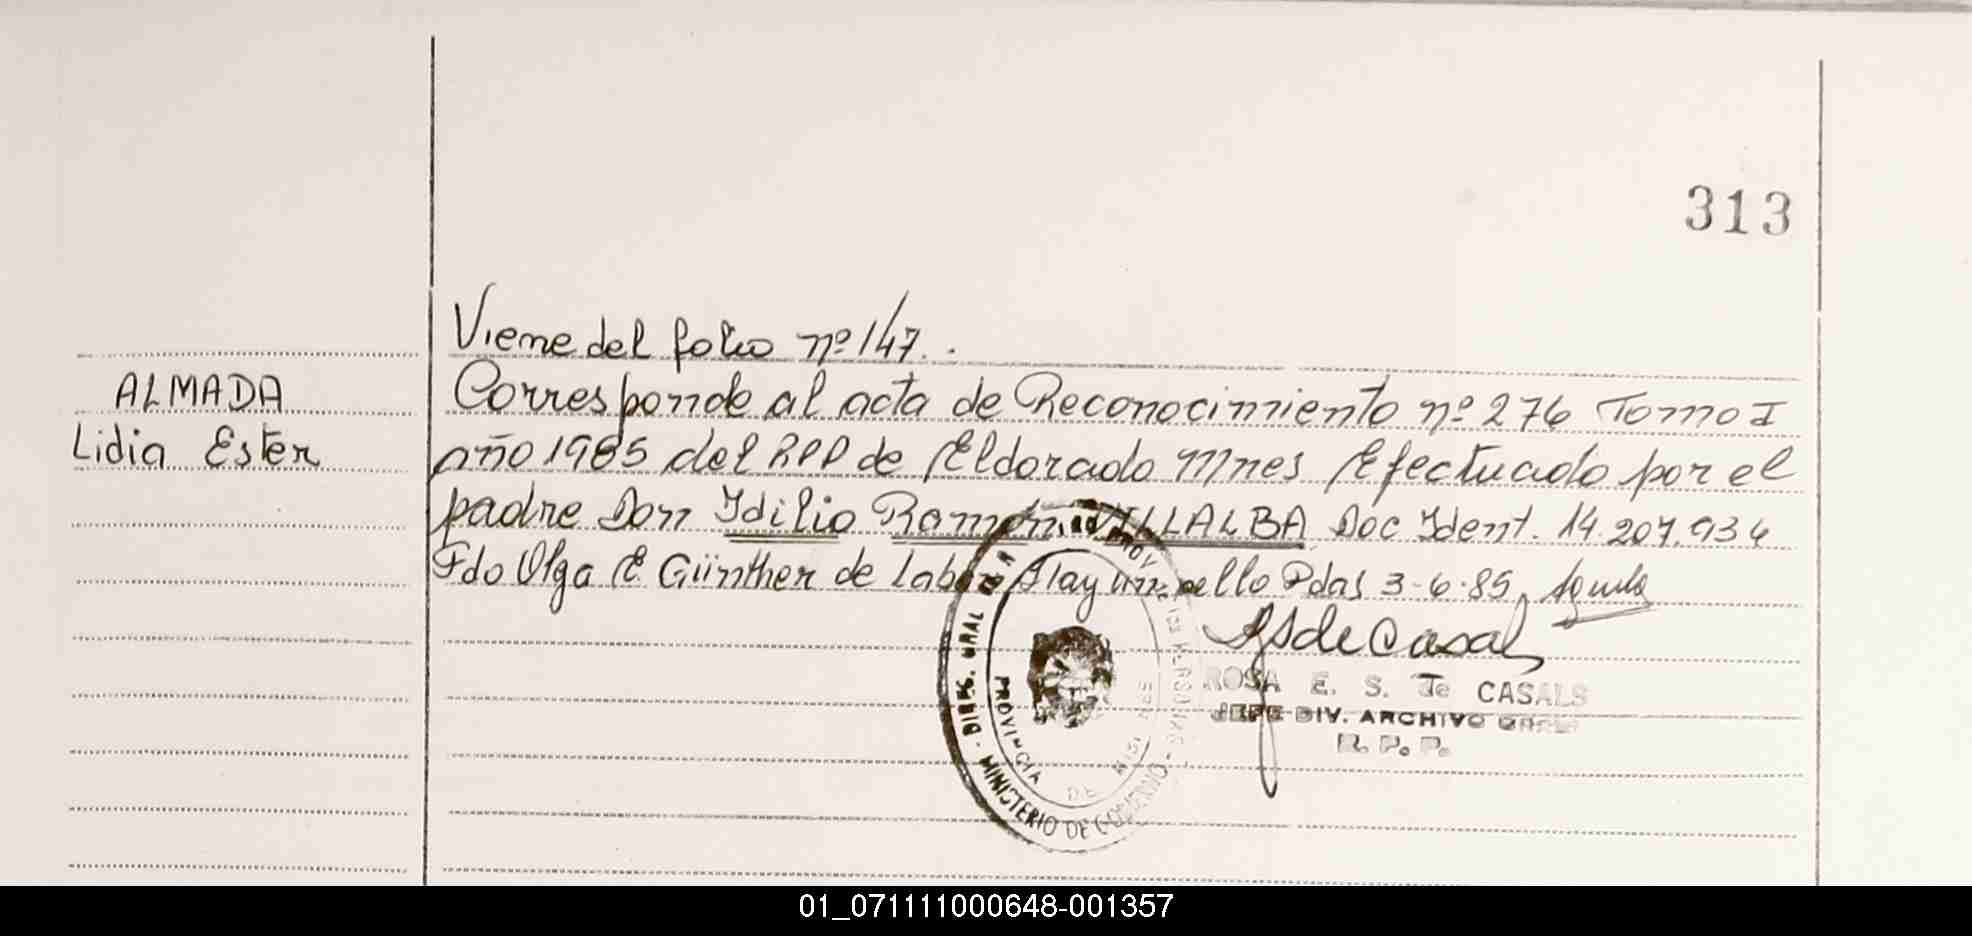 313
Viene del folio nº 147.
ALMADA
Lidia Ester
Corresponde al acta de Reconocimiento nº 276 Tomo I
año 1985 del RPP de Eldorado Mnes Efectuado por el
padre Don Idilio Ramón VILLALBA Doc Ident. 14.207.934
Fdo Olga E. Günther de Labor Hay un sello Pdas 3-6-85
ROSA E. S. de CASALS
JEFE DIV. ARCHIVO GRAL
R. P. P.
MINISTERIO DE GOBIERNO
PROVINCIA DE MISIONES
01_071111000648-001357